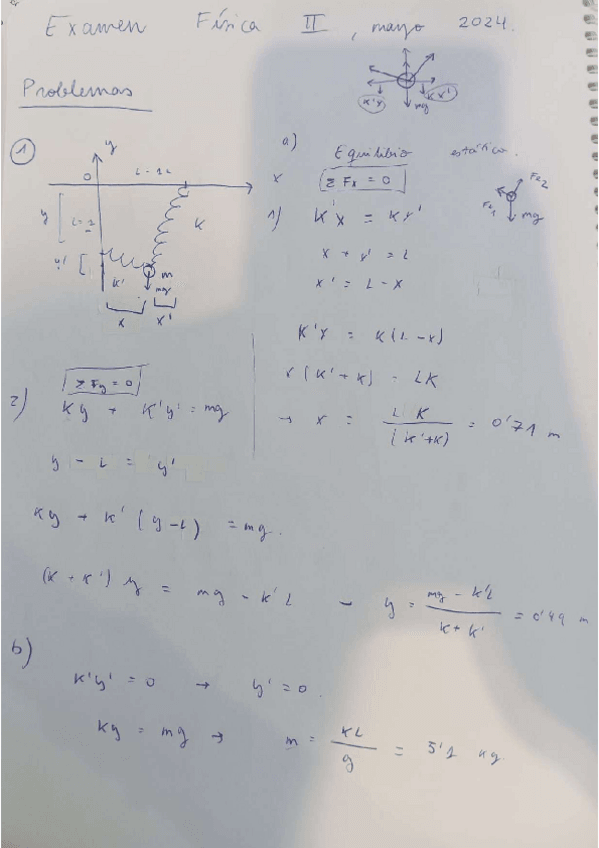 Examen Física II, mayo 2024.
Problemas
K'x
mg
Kx'
1
y
0
L = 1
x
y
L = 1
y'
K
K'
m
mg
x
x'
a)
Equilibrio estático.
Σ Fx = 0
Fe2
Fe1
mg
1) K'x = Kx'
x + x' = L
x' = L - x
K'x = K(L-x)
x(K'+K) - LK
→ x = LK / (K'+K) = 0'71 m
2) Σ Fy = 0
Ky + K'y' = mg
y - L = y'
Ky + K'(y-L) = mg.
(K + K') y = mg - K'L - y = mg - K'L / K + K' = 0'49 m
b)
K'y' = 0 → y' = 0.
Ky = mg → m = KL / g = 5'1 kg